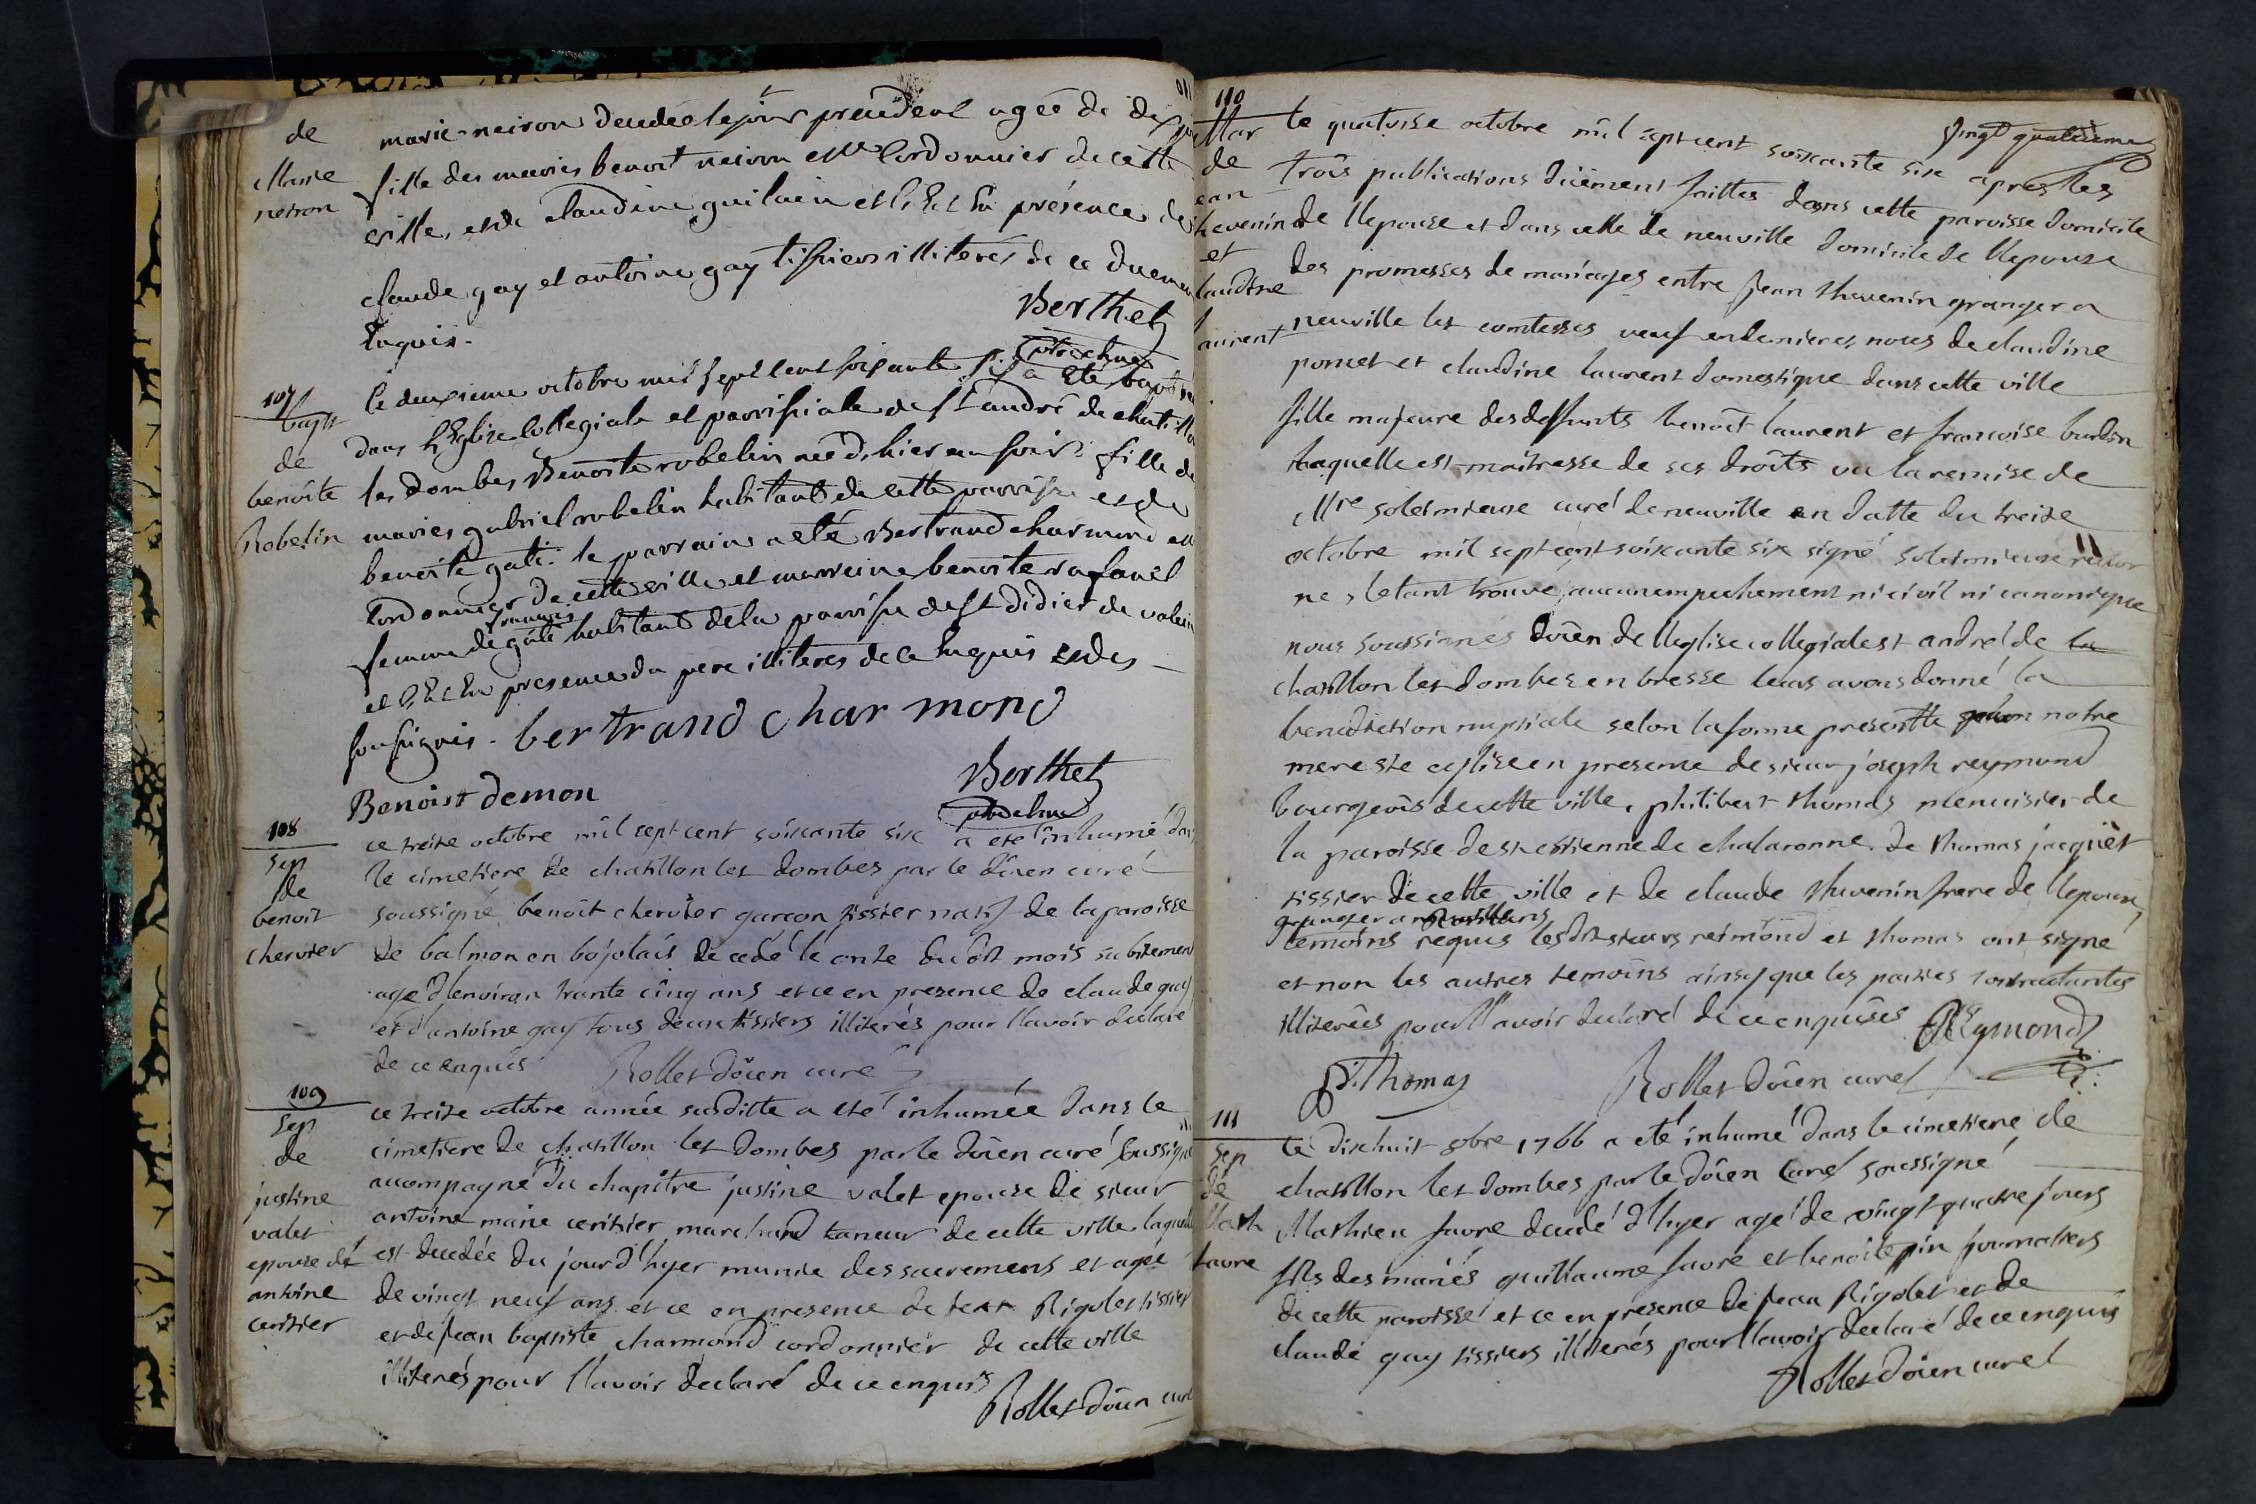 de
Marie
neiron
marie neiron decedée le jour précédent agée de dix
fille des mariés benoit neiron et cordonnier de cette
ville, et de claudine guilnin et C'Est En présence de
claude gay et antoine gay tissiers illiterés de ce duemen
Enquis.
Berthet
107
bapt
de
benoite
Robelin
Le deuxieme octobre mil sept cent soixante six a Eté baptisé
dans l'Eglise Collegiale et parroissiale de St andré de chatillon
les dombes Benoite robelin née d'hier au soir fille de
mariés gabriel robelin habitant de cette parroisse et de
benoite gati. le parrain a eté Bertrand charmond
Cordonnier de cette ville et marreine benoite rafanel
femme de françois gati habitant de la parroisse de St didier de valein
et C'Est En presence du pere illiteres de ce Enquis et des
soussignés. bertrand char mond
Berthet
Benoist demon
108
sep
de
benoit
chervier
ce treize octobre mil sept cent soixante six a eté inhumé dans
le cimetiere de chatillon les dombes par le doien curé
soussigné benoit chervier garcon tissier natif de la paroisse
de balmon en bojolais decedé le onze du dit mois subitement
agé d'lenviron trante cinq ans et ce en presence de claude gay
et d'antoine gay tous deux tissiers illiterés pour l'lavoir declaré
de ce enquis Rollet doien curé
109
sep
de
justine
valet
epouze de
antoine
ceritier
ce treize octobre année susditte a eté inhumée dans le
cimetiere de chatillon les dombes par le doien curé soussigné
accompagné du chapitre justine valet epouze de sieur
antoine marie ceritier marchand taneur de cette ville laquelle
est decedée du jour d'hyer munie des sacremens et agée
de vingt neuf ans et ce en presence de jean Rigolet tissier
et de jean baptiste charmond cordonnier de cette ville
illiterés pour l'lavoir declaré de ce enquis
Rollet doien curé
vingt quatrieme
110
Mar
de
ean
hevenin
et
laudine
aurent
Le quatorse octobre mil sept cent soixante six apres les
trois publications düement faittes dans cette paroisse domicile
de l'lepouze et dans celle de neuville domicile de l'lepoux
des promesses de mariages entre jean thevenin granger a
neuville les comtesses veuf en dernieres noces de claudine
poncet et claudine laurent domestique dans cette ville
fille majeure des deffunts benoit laurent et francoise burdin
laquelle est maitresse de ses droits vu la remise de
Mre soleimieux curé de neuville en datte du treize
octobre mil sept cent soixante six signé soleimieux
ne, s'etant trouvé aucun empechement ni civil ni canonique
nous soussignés doien de l'leglise collegiale st andré de la
chatillon les dombes en bresse leurs avons donné la
benediction nuptiale selon la forme presentte notre
mere ste eglise en presence de sieur joseph reymond
bourgeois de cette ville, philibert thomas menuisier de
la paroisse de st estienne de chalaronne. de thomas jacquet
tissier de cette ville et de claude thevenin frere de l'lepoux
granger a
temoins requis les dit sieurs reimond et thomas ont signé
et non les autres temoins ainsy que les parties contractantes
illiterées pour l'lavoir declaré de ce enquises REymond
P. Thomas Rollet doien curé
111
sep
de
Math
favre
Le dixhuit 8bre 1766 a eté inhumé dans le cimetiere de
chatillon les dombes par le doien curé soussigné
Mathieu favre decedé d'lhyer agé de vingt quatre jours
fils des mariés guillaume favre et benoite pin journaliers
de cette paroisse et ce en presence de jean Rigolet et de
claude gay tissiers illiterés pour l'lavoir declaré de ce enquis
Rollet doien curé